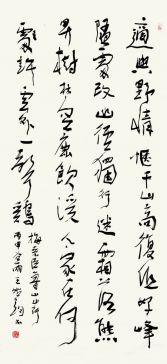 適與野情愜千山高復低好峰
隨處改幽徑獨行迷霜落熊
昇樹林空鹿飲溪人家在何
許雲外一聲鷄
梅堯臣魯山山行
丙申